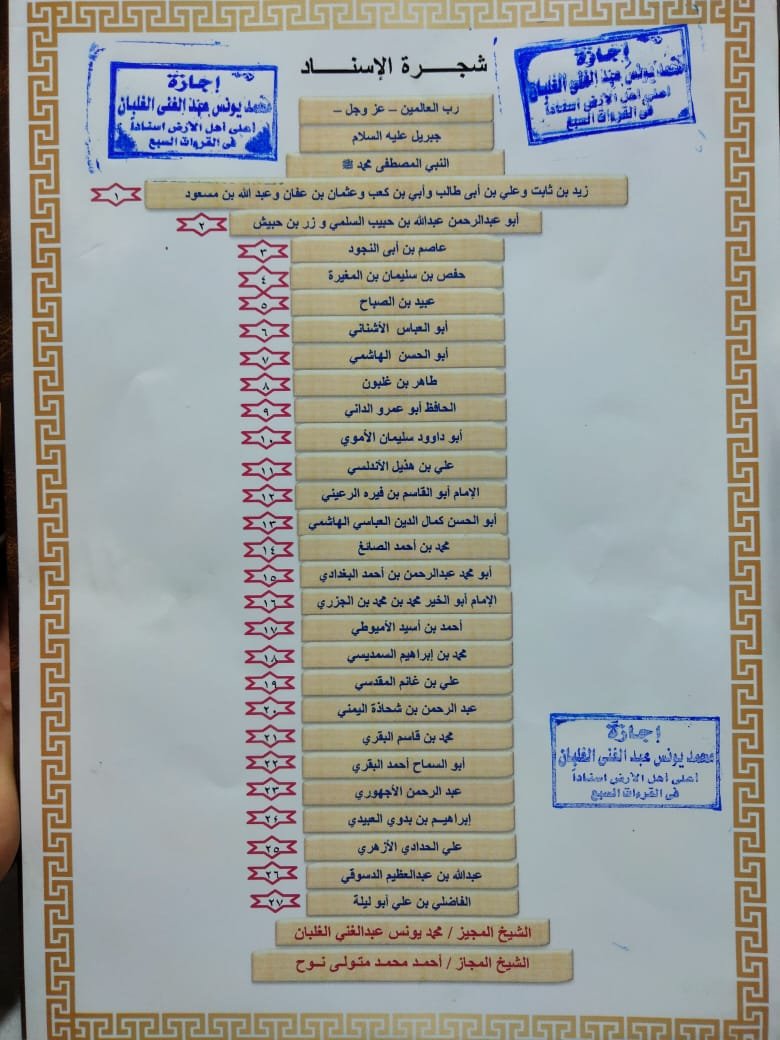 شجرة الإسناد
إجازة
محمد يونس عبد الغنى الغلبان
أعلى أهل الأرض اسناداً
فى القروات السبع
إجازة
محمد يونس عبد الغنى الغلبان
أعلى أهل الأرض اسناداً
فى القروات السبع
رب العالمين – عز وجل –
جبريل عليه السلام
النبي المصطفى محمد ﷺ
زيد بن ثابت وعلي بن أبى طالب وأبي بن كعب وعثمان بن عفان وعبد الله بن مسعود ١
أبو عبدالرحمن عبدالله بن حبيب السلمي و زر بن حبيش ٢
عاصم بن أبى النجود ٣
حفص بن سليمان بن المغيرة ٤
عبيد بن الصباح ٥
أبو العباس الأشناني ٦
أبو الحسن الهاشمي ٧
طاهر بن غلبون ٨
الحافظ أبو عمرو الداني ٩
أبو داوود سليمان الأموي ١٠
علي بن هذيل الآندلسي ١١
الإمام أبو القاسم بن فيره الرعيني ١٢
أبو الحسن كمال الدين العباسي الهاشمي ١٣
محمد بن أحمد الصائغ ١٤
أبو محمد عبدالرحمن بن أحمد البغدادي ١٥
الإمام أبو الخير محمد بن محمد بن الجزري ١٦
أحمد بن أسيد الأميوطي ١٧
محمد بن إبراهيم السمديسي ١٨
علي بن غانم المقدسي ١٩
عبد الرحمن بن شحاذة اليمني ٢٠
محمد بن قاسم البقري ٢١
أبو السماح أحمد البقري ٢٢
عبد الرحمن الأجهوري ٢٣
إبراهيم بن بدوي العبيدي ٢٤
علي الحدادي الأزهري ٢٥
عبدالله بن عبدالعظيم الدسوقي ٢٦
الفاضلي بن علي أبو ليلة ٢٧
الشيخ المجيز / محمد يونس عبدالغني الغلبان
الشيخ المجاز / أحمد محمد متولى نوح
إجازة
محمد يونس عبد الغنى الغلبان
أعلى أهل الأرض اسناداً
فى القروات السبع